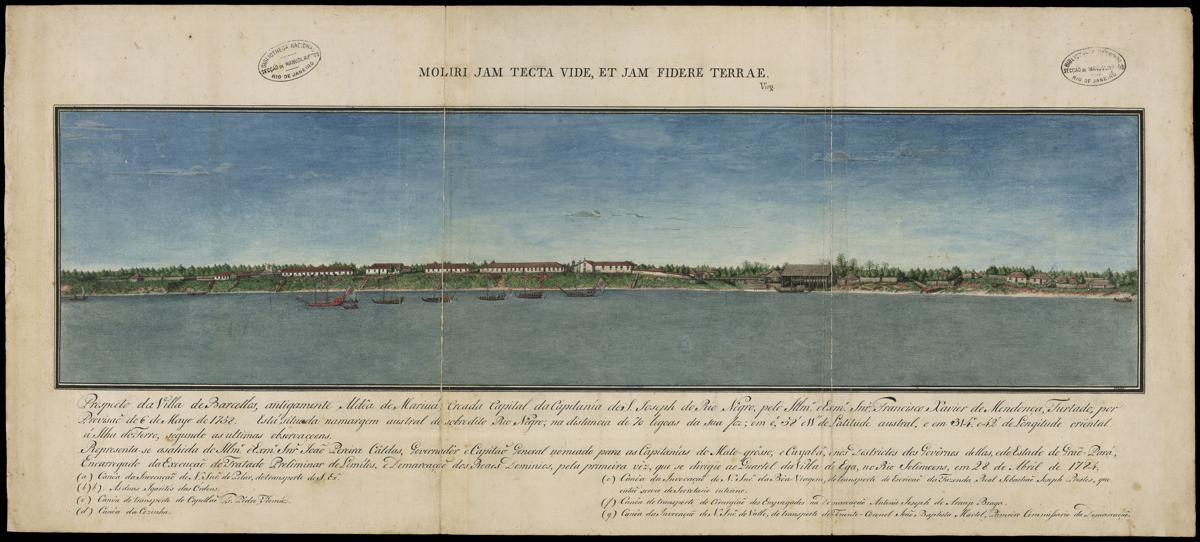 BIBLIOTHECA NACIONAL
SECÇÃO DE MANUSCRIPTOS
RIO DE JANEIRO
MOLIRI JAM TECTA VIDE, ET JAM FIDERE TERRAE.
Virg.
SECÇÃO DE MANUSCRIPTOS
RIO DE JANEIRO
Prospecto da Villa de Barcellos, antigamente Aldêa de Mariuá, creada Capital da Capitania de S. Joseph do Rio Negro, pelo Illmo. e Exmo. Snr. Francisco Xavier de Mendonça, Furtado, por
Provisão de 6 de Mayo de 1758. Está situada na margem austral do sobredito Rio Negro; na distancia de 70 legoas da sua foz; em 0,, 58' de Latitude austral, e em 314. e 42 de Longitude oriental
a Ilha do Ferro, segundo as ultimas observaçoens.
Representa-se a sahida do Illmo. e Exmo. Snr. João Pereira Caldas, Governador e Capitão General nomeado para as Capitanias do Mato grosso, e Cuyabá, e nos Destrictos dos Govêrnos dellas, e do Estado do Grão-Pará,
Encarregado da Execução do Tratado Preliminar de Limites, e Demarcação dos Reaes Dominios, pela primeira vez, que se dirigio ao Quartel da Villa de Ega, no Rio Solimoens, em 28 de Abril de 1784.
(a) Canôa da Invocação de N. Snra. do Pilar, de transporte de S. Ex.
(b)(b) As duas Igarités das Ordens.
(c) Canôa de transporte do Capellão Pe. Pedro
(d) Canôa da Cozinha.
(e) Canôa da Invocação de N. Snra. da Bôa-Viagem, de transporte do Escrivão da Fazenda Real Sebastião Joseph Prestes, que
então servio de Secretario interino.
(f) Canôa de transporte do Cirurgião dos Empregados na Demarcação Antonio Joseph de Araujo Braga.
(g) Canôa da Invocação de N. Snra. do Valle, de transporte do Tenente-Coronel João Baptista Martel, Primeiro Commissario da Demarcação.